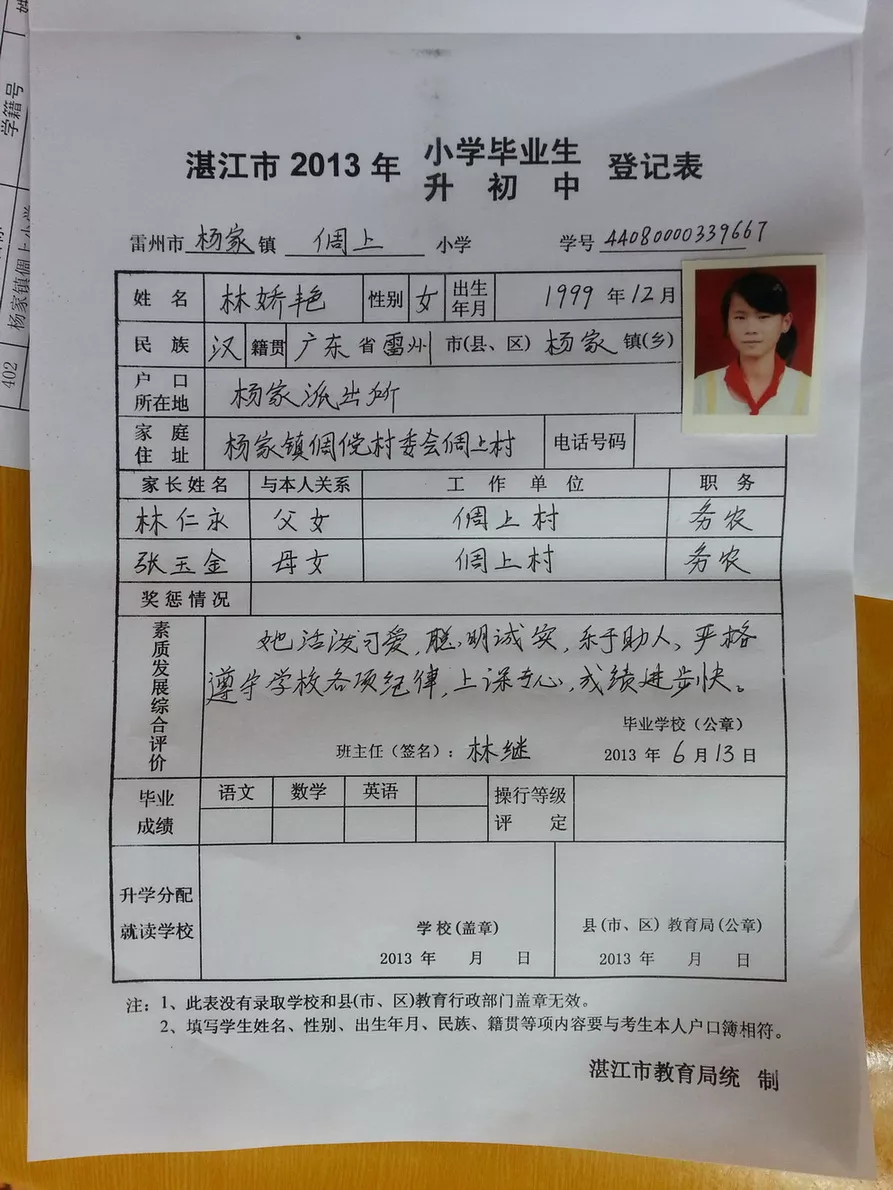 学籍号
杨家镇倜上小学
402
湛江市 2013 年 小学毕业生 登记表
升 初 中
雷州市 杨家 镇 倜上 小学 学号 44080000339667
姓 名 林娇艳 性别 女 出生年月 1999 年 12 月
民 族 汉 籍贯 广东 省 雷州 市(县、区) 杨家 镇(乡)
户 口 所在地 杨家派出所
家 庭 住 址 杨家镇倜傥村委会倜上村 电话号码
家长姓名 与本人关系 工 作 单 位 职 务
林仁永 父女 倜上村 务农
张玉金 母女 倜上村 务农
奖惩情况
素质发展综合评价
她活泼可爱,聪明诚实,乐于助人、严格
遵守学校各项纪律,上课专心,成绩进步快。
毕业学校(公章)
班主任(签名): 林继 2013 年 6 月 13 日
毕业成绩 语文 数学 英语 操行等级评 定
升学分配就读学校
学校(盖章) 县(市、区)教育局(公章)
2013 年 月 日 2013 年 月 日
注: 1、此表没有录取学校和县(市、区)教育行政部门盖章无效。
2、填写学生姓名、性别、出生年月、民族、籍贯等项内容要与考生本人户口簿相符。
湛江市教育局统 制